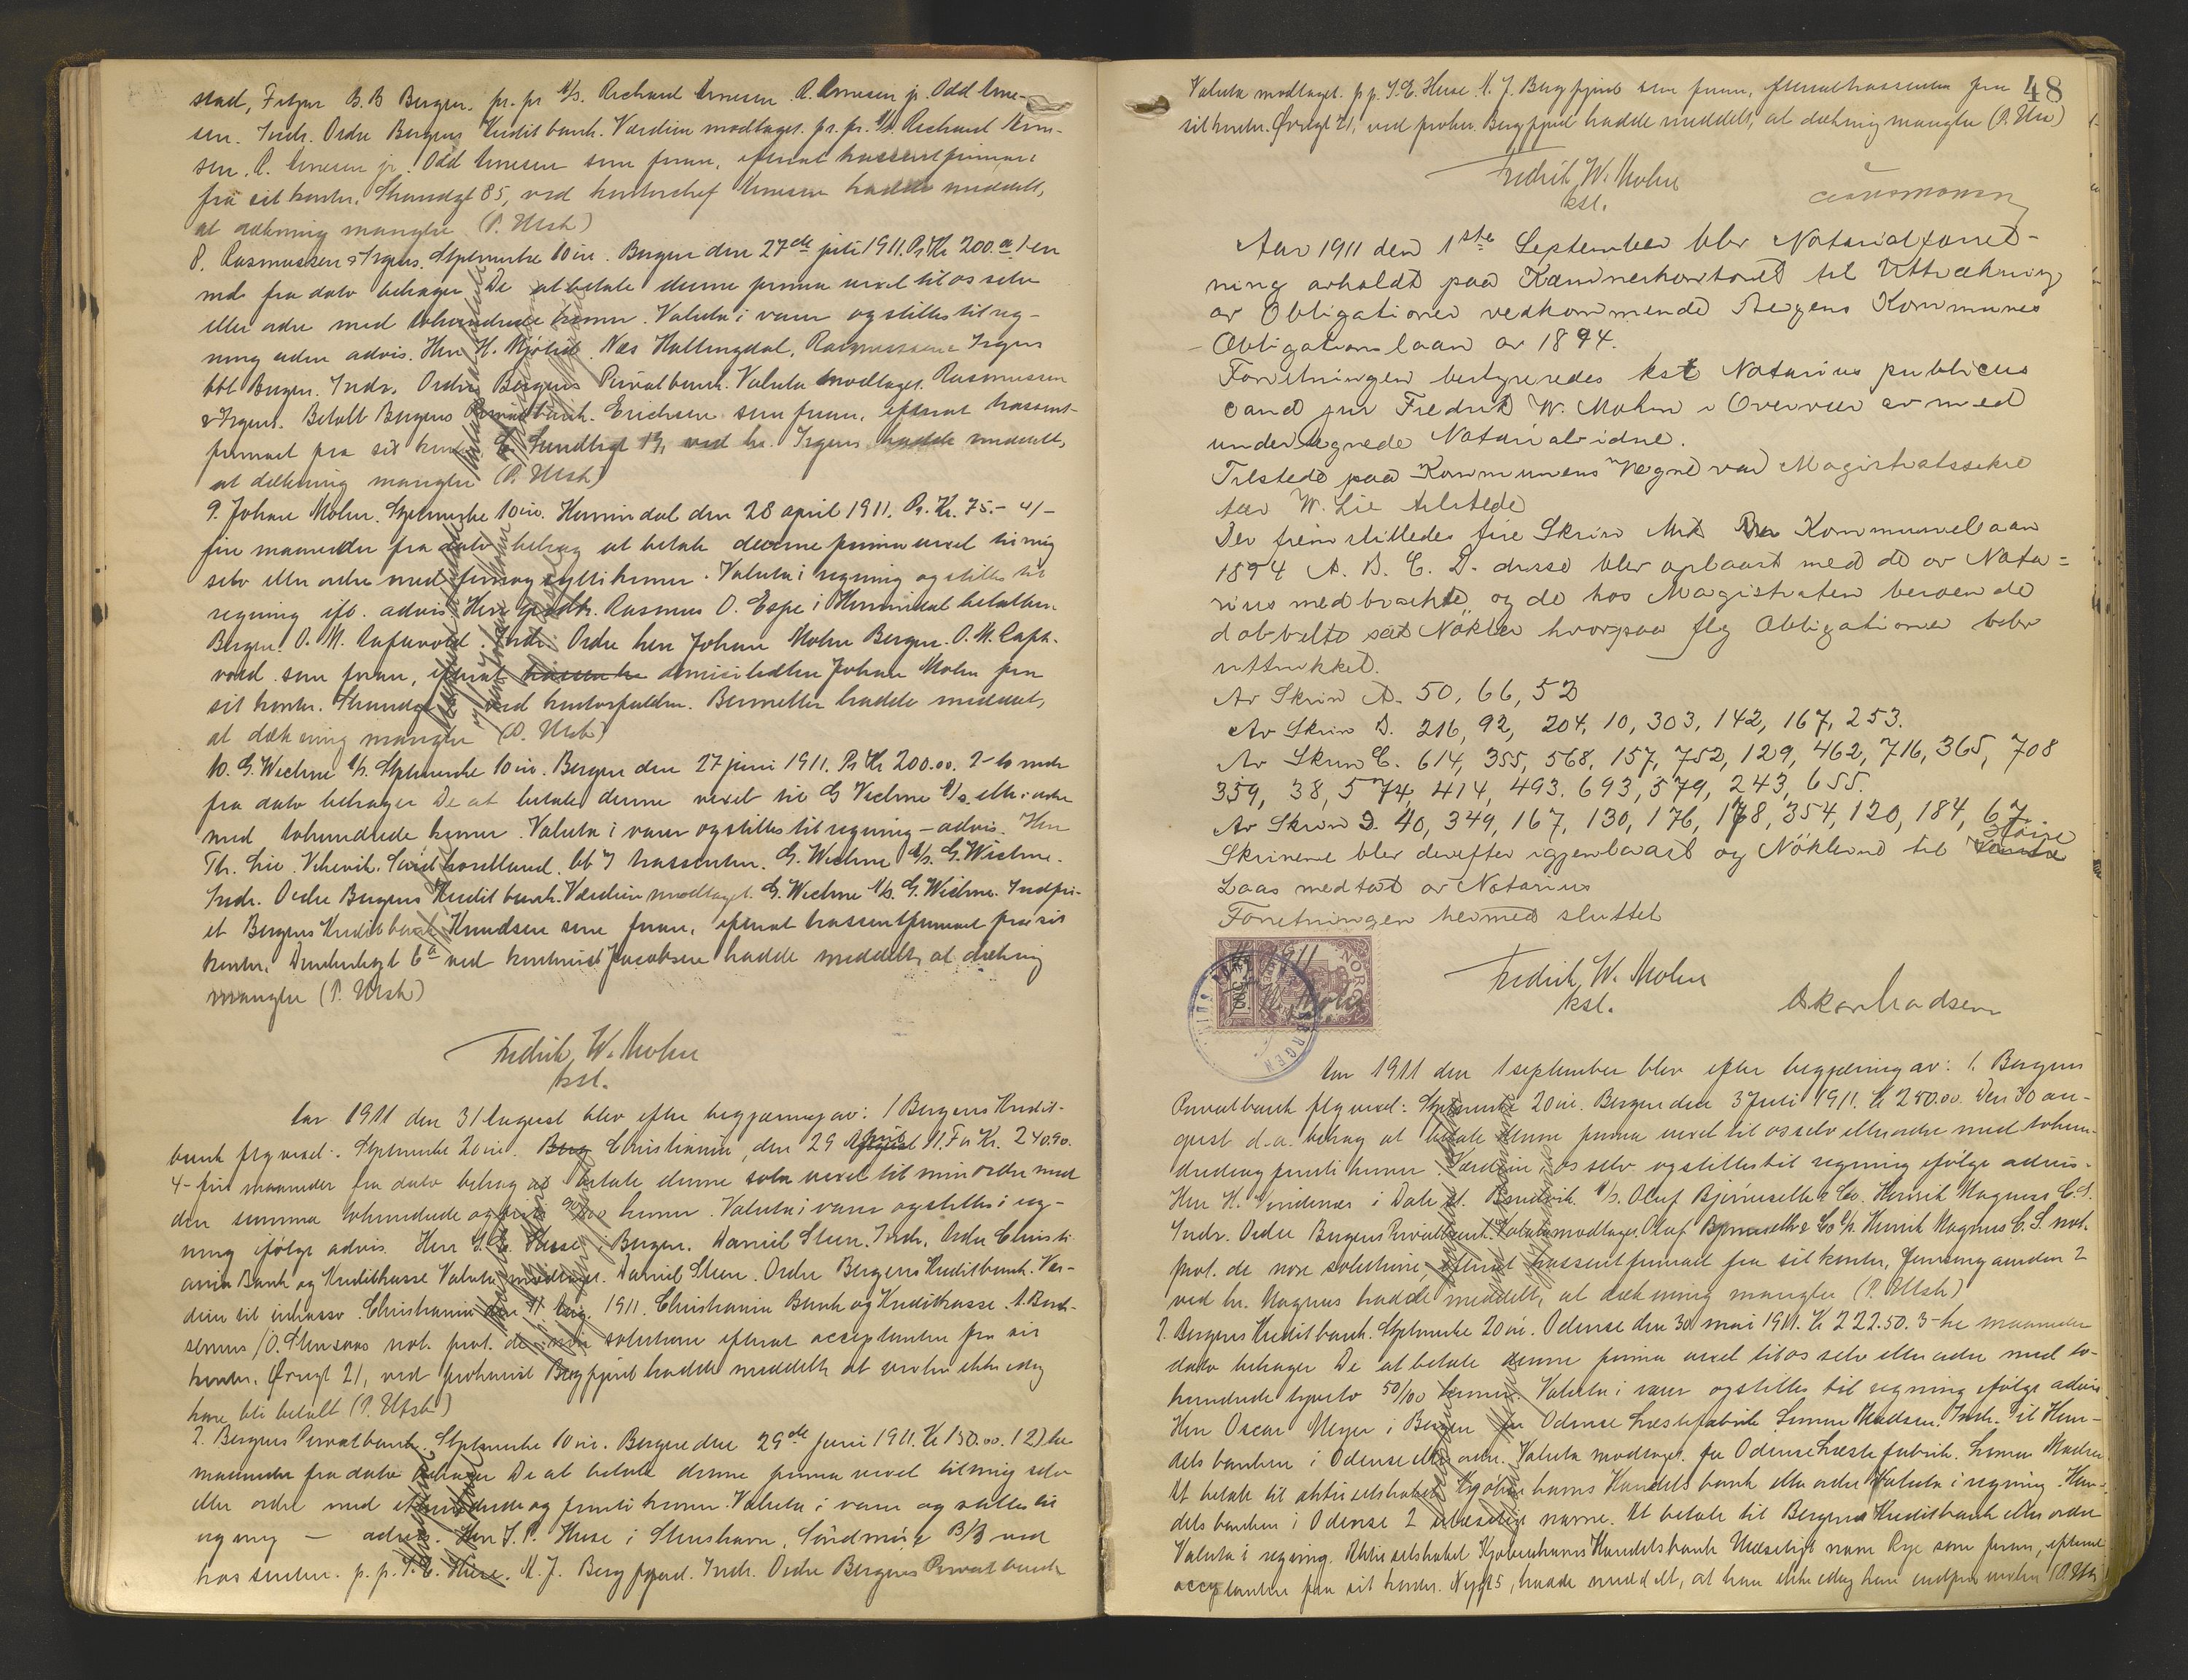 stad, Fitjar B.B Bergen. pr. pr A/S. Richard Arnesen. R. Arnesen jr. Odd Arne-
sen. Indr. Ordre Bergens Kreditbank. Værdien modtaget. pr. pr. A/S. Richard Arne-
sen. R. Arnesen jr. Odd Arnesen som foran, efterat
fra sit kontor, Strandgt 85, ved kontorchef Arnesen hadde meddelt,
at dækning mangler (P. Utsk)
8. Rasmussen & Irgens. Stplmerke 10 øre. Bergen den 27de juli 1911. Pr Kr 200.00 1-en
md. fra dato behager De at betale denne prima vexel til os selv
eller ordre med tohundrede kroner. Valuta i varer og stilles til reg-
ning uden advis. Herr H. Næs Hallingdal, Rasmussen & Irgens
bbt Bergen. Indr. Ordre Bergens Privatbank. Valuta modtaget. Rasmussen
& Irgens. Betalt Bergens Privatbank. Erichsen som foran, efterat trassent-
firmaet fra sit kontor ved hr. Irgens hadde meddelt,
at dækning mangler (P. Utsk)
9. Johan Mohn. Stplmerke 10 øre. den 28 april 1911. Pr. Kr. 75.- 4/-
fire maaneder fra dato behag at betale denne prima vexel til mig
selv eller ordre med femogsytti kroner. Valuta i regning og stilles til
regning ifl. advis Herr Rasmus O. Espe i betalbar
Bergen. O. M. Indr. Ordre herr Johan Mohn Bergen. O. M.
vold som foran, efterat domiciliathen Johan Mohn fra
sit kontor. ved kontorfuldm. hadde meddelt,
at dækning mangler (P. Utsk)
10. G. Wechne A/S. Stplmerke 10 øre. Bergen den 27 juni 1911. Pr Kr 200.00. 2-to mdr
fra dato behager De at betale denne vexel til G Wechne A/S eller ordre
med tohundrede kroner. Valuta i varer og stilles til regning - advis. Herr
Th. Lie. Søndhordland. bb hos trassenten. G. Wechne A/S. G. Wechne.
Indr. Ordre Bergens Kreditbank. Værdien modtaget. G. Wechne A/S. G. Wechne. Indfri-
et Bergens Kreditbank. Knudsen som foran, efterat trassentfirmaet fra sit
kontor, 6a ved kontorist Jacobsen hadde meddelt, at dækning
mangler (P. Utsk)
Fredrik W. Mohn
kst.
Aar 1911 den 31 August blev efter begjæring av: 1 Bergens Kredit-
bank flg vexel: Stplmerke 20 øre. Berg Christiania, den 29 April 11. For Kr. 240.90.
4-fire maaneder fra dato behag at betale denne sola vexel til min ordre med
den summa tohundrede og førti 90/100 kroner. Valuta i varer og stilles i reg-
ning ifølge advis. Herr S. E. Huse i Bergen. Daniel Steen. Indr. Ordre Christi-
ania Bank og Kreditkasse Valuta modtaget. Daniel Steen. Ordre Bergens Kreditbank. Vær-
dien til inkasso. Christiania den 11 Aug. 1911. Christiania Bank og Kreditkasse.
not. prot. de non solutione efterat acceptanten fra sit
kontor. Øvregt 21, ved prokurist Bergfjord hadde meddelt at vexlen ikke idag
kan bli betalt (P. Utsk)
2. Bergens Privatbank. Stplmerke 10 øre. Bergen den 29de Juni 1911. Kr 150.00. (2) to
maaneder fra dato behager De at betale denne prima vexel til mig selv
eller ordre med ethundrede og femti kroner. Valuta i varer og stilles til
regning - advis. Herr S. P. Huse i Steinshavn, Söndmöre B/B ved
trassenten. p. p. S. E. Huse. M. J. Bergfjord. Indr. Ordre Bergens Privatbank
48
Valuta modtaget. p. p. S. E. Huse. M. J. Bergfjord som foran, efterat trassenten fra
sit kontor. Øvregt 21, ved prokur. Bergfjord hadde meddelt, at dækning mangler (P. Utsk)
Fredrik W. Mohn
kst.
Aar 1911 den 1ste September blev Notarialforret-
ning avholdt paa Kæmnerkontoret til Uttrækning
av Obligationer vedkommende Bergens Kommunes
Obligationslaan av 1894.
Forretningen bestyreredes kst Notarius publicus
cand jur Fredrik W. Mohn i Overvær av med
undertegnede Notarialvidne.
Tilstede paa Kommunens Vegne var Magistratssekre
tær W. Lie tilstede
Der fremstilledes fire Skrin Mrk Kommunelaan
1894 A. B. C. D. disse blev oplaast med de av Nota=
rius medbrachte og de hos Magistraten beroende
dobbelte sæt Nökler hvorpaa flg Obligationer blev
uttrukket.
Av Skrin A. 50, 66, 52
Av Skrin B. 216, 92, 204, 10, 303, 142, 167, 253.
Av Skrin C. 614, 355, 568, 157, 752, 129, 462, 716, 365, 708
359, 38, 574, 414, 493. 693, 579, 243, 655.
Av Skrin D. 40, 349, 167, 130, 176, 178, 354, 120, 184, 67.
Skrinene blev derefter igjenlaast og Nöklene til höire
Laas medtat av Notarius
Forretningen hermed sluttet
1911
NORGE
BERGEN
Fredrik W. Mohn
kst.
Oskar Madsen
Aar 1911 den 1 september blev efter begjæring av: 1. Bergens
Privatbank flg vexel: Stplmerke 20 øre. Bergen den 3 Juli 1911. Kr 250.00. Den 30 au-
gust d.a. behag at betale denne prima vexel til os selv eller ordre med tohun-
dredeog femti kroner. Værdien i os selv og stilles til regning ifølge advis.
Herr H. Vindenes i Dale A/S. Olaf Bjørnseth & Co. Henrik Magnus C. S.
Indr. Ordre Bergens Privatbank. Valuta modtaget. Olaf Bjørnseth & Co A/S. Henrik Magnus C. S. not.
prot. de non solutione, efterat trassentfirmaet fra sit kontor, 2
ved hr. Magnus hadde meddelt, at dækning mangler (P. Utsk)
2. Bergens Kreditbank. Stplmerke 20 øre. Odense den 30 mai 1911. Kr 222.50. 3-tre maaneder
dato behager De at betale denne prima vexel til os selv eller ordre med to-
hundrede tyveto 50/100 kroner. Valuta i varer og stilles til regning ifølge advis
Herr Oscar Meyer i Bergen for Odense Læstefabrik Simon Madsen. Indr. Til Han-
dels banken i Odense eller ordre. Valuta modtaget. for Odense Læstefabrik. Simon Madsen
At betale til aktieselskabet Kjøbenhavns Handelsbank eller ordre Valuta i regning. Han-
dels banken i Odense 2 ulæselige navne. At betale til Bergens Kreditbank eller ordre
Valuta i regning. Aktieselskabet Kjøbenhavns Handelsbank Ulæseligt navn Rye som foran, efterat
acceptanten fra sit kontor. Nygt 5, hadde meddelt, at han ikke idag kan indfri vexlen (P. Utsk)